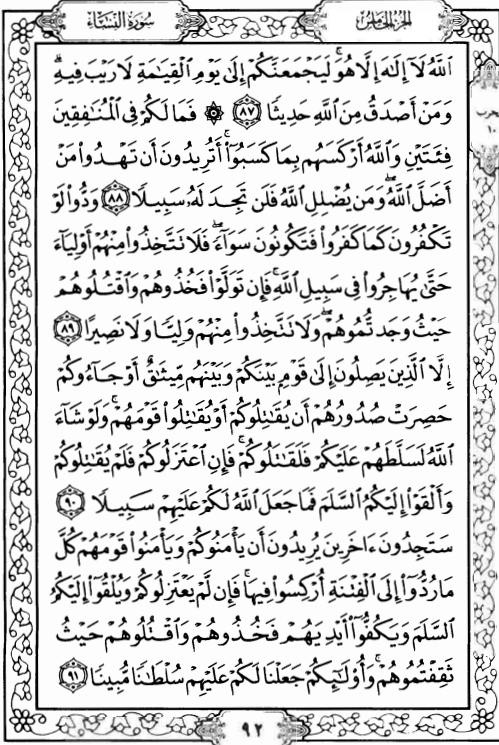 سُورَةُ النِّسَاءِ
الجُزءُ الخَامِسُ
ٱللَّهُ لَآ إِلَٰهَ إِلَّا هُوَۚ لَيَجۡمَعَنَّكُمۡ إِلَىٰ يَوۡمِ ٱلۡقِيَٰمَةِ لَا رَيۡبَ فِيهِۗ
وَمَنۡ أَصۡدَقُ مِنَ ٱللَّهِ حَدِيثٗا ٨٧ ۞ فَمَا لَكُمۡ فِي ٱلۡمُنَٰفِقِينَ
فِئَتَيۡنِ وَٱللَّهُ أَرۡكَسَهُم بِمَا كَسَبُوٓاْۚ أَتُرِيدُونَ أَن تَهۡدُواْ مَنۡ
أَضَلَّ ٱللَّهُۖ وَمَن يُضۡلِلِ ٱللَّهُ فَلَن تَجِدَ لَهُۥ سَبِيلٗا ٨٨ وَدُّواْ لَوۡ
تَكۡفُرُونَ كَمَا كَفَرُواْ فَتَكُونُونَ سَوَآءٗۖ فَلَا تَتَّخِذُواْ مِنۡهُمۡ أَوۡلِيَآءَ
حَتَّىٰ يُهَاجِرُواْ فِي سَبِيلِ ٱللَّهِۚ فَإِن تَوَلَّوۡاْ فَخُذُوهُمۡ وَٱقۡتُلُوهُمۡ
حَيۡثُ وَجَدتُّمُوهُمۡۖ وَلَا تَتَّخِذُواْ مِنۡهُمۡ وَلِيّٗا وَلَا نَصِيرًا ٨٩
إِلَّا ٱلَّذِينَ يَصِلُونَ إِلَىٰ قَوۡمِۭ بَيۡنَكُمۡ وَبَيۡنَهُم مِّيثَٰقٌ أَوۡ جَآءُوكُمۡ
حَصِرَتۡ صُدُورُهُمۡ أَن يُقَٰتِلُوكُمۡ أَوۡ يُقَٰتِلُواْ قَوۡمَهُمۡۚ وَلَوۡ شَآءَ
ٱللَّهُ لَسَلَّطَهُمۡ عَلَيۡكُمۡ فَلَقَٰتَلُوكُمۡۚ فَإِنِ ٱعۡتَزَلُوكُمۡ فَلَمۡ يُقَٰتِلُوكُمۡ
وَأَلۡقَوۡاْ إِلَيۡكُمُ ٱلسَّلَمَ فَمَا جَعَلَ ٱللَّهُ لَكُمۡ عَلَيۡهِمۡ سَبِيلٗا ٩٠
سَتَجِدُونَ ءَاخَرِينَ يُرِيدُونَ أَن يَأۡمَنُوكُمۡ وَيَأۡمَنُواْ قَوۡمَهُمۡ كُلَّ
مَا رُدُّوٓاْ إِلَى ٱلۡفِتۡنَةِ أُرۡكِسُواْ فِيهَاۚ فَإِن لَّمۡ يَعۡتَزِلُوكُمۡ وَيُلۡقُوٓاْ إِلَيۡكُمُ
ٱلسَّلَمَ وَيَكُفُّوٓاْ أَيۡدِيَهُمۡ فَخُذُوهُمۡ وَٱقۡتُلُوهُمۡ حَيۡثُ
ثَقِفۡتُمُوهُمۡۚ وَأُوْلَٰٓئِكُمۡ جَعَلۡنَا لَكُمۡ عَلَيۡهِمۡ سُلۡطَٰنٗا مُّبِينٗا ٩١
٩٢